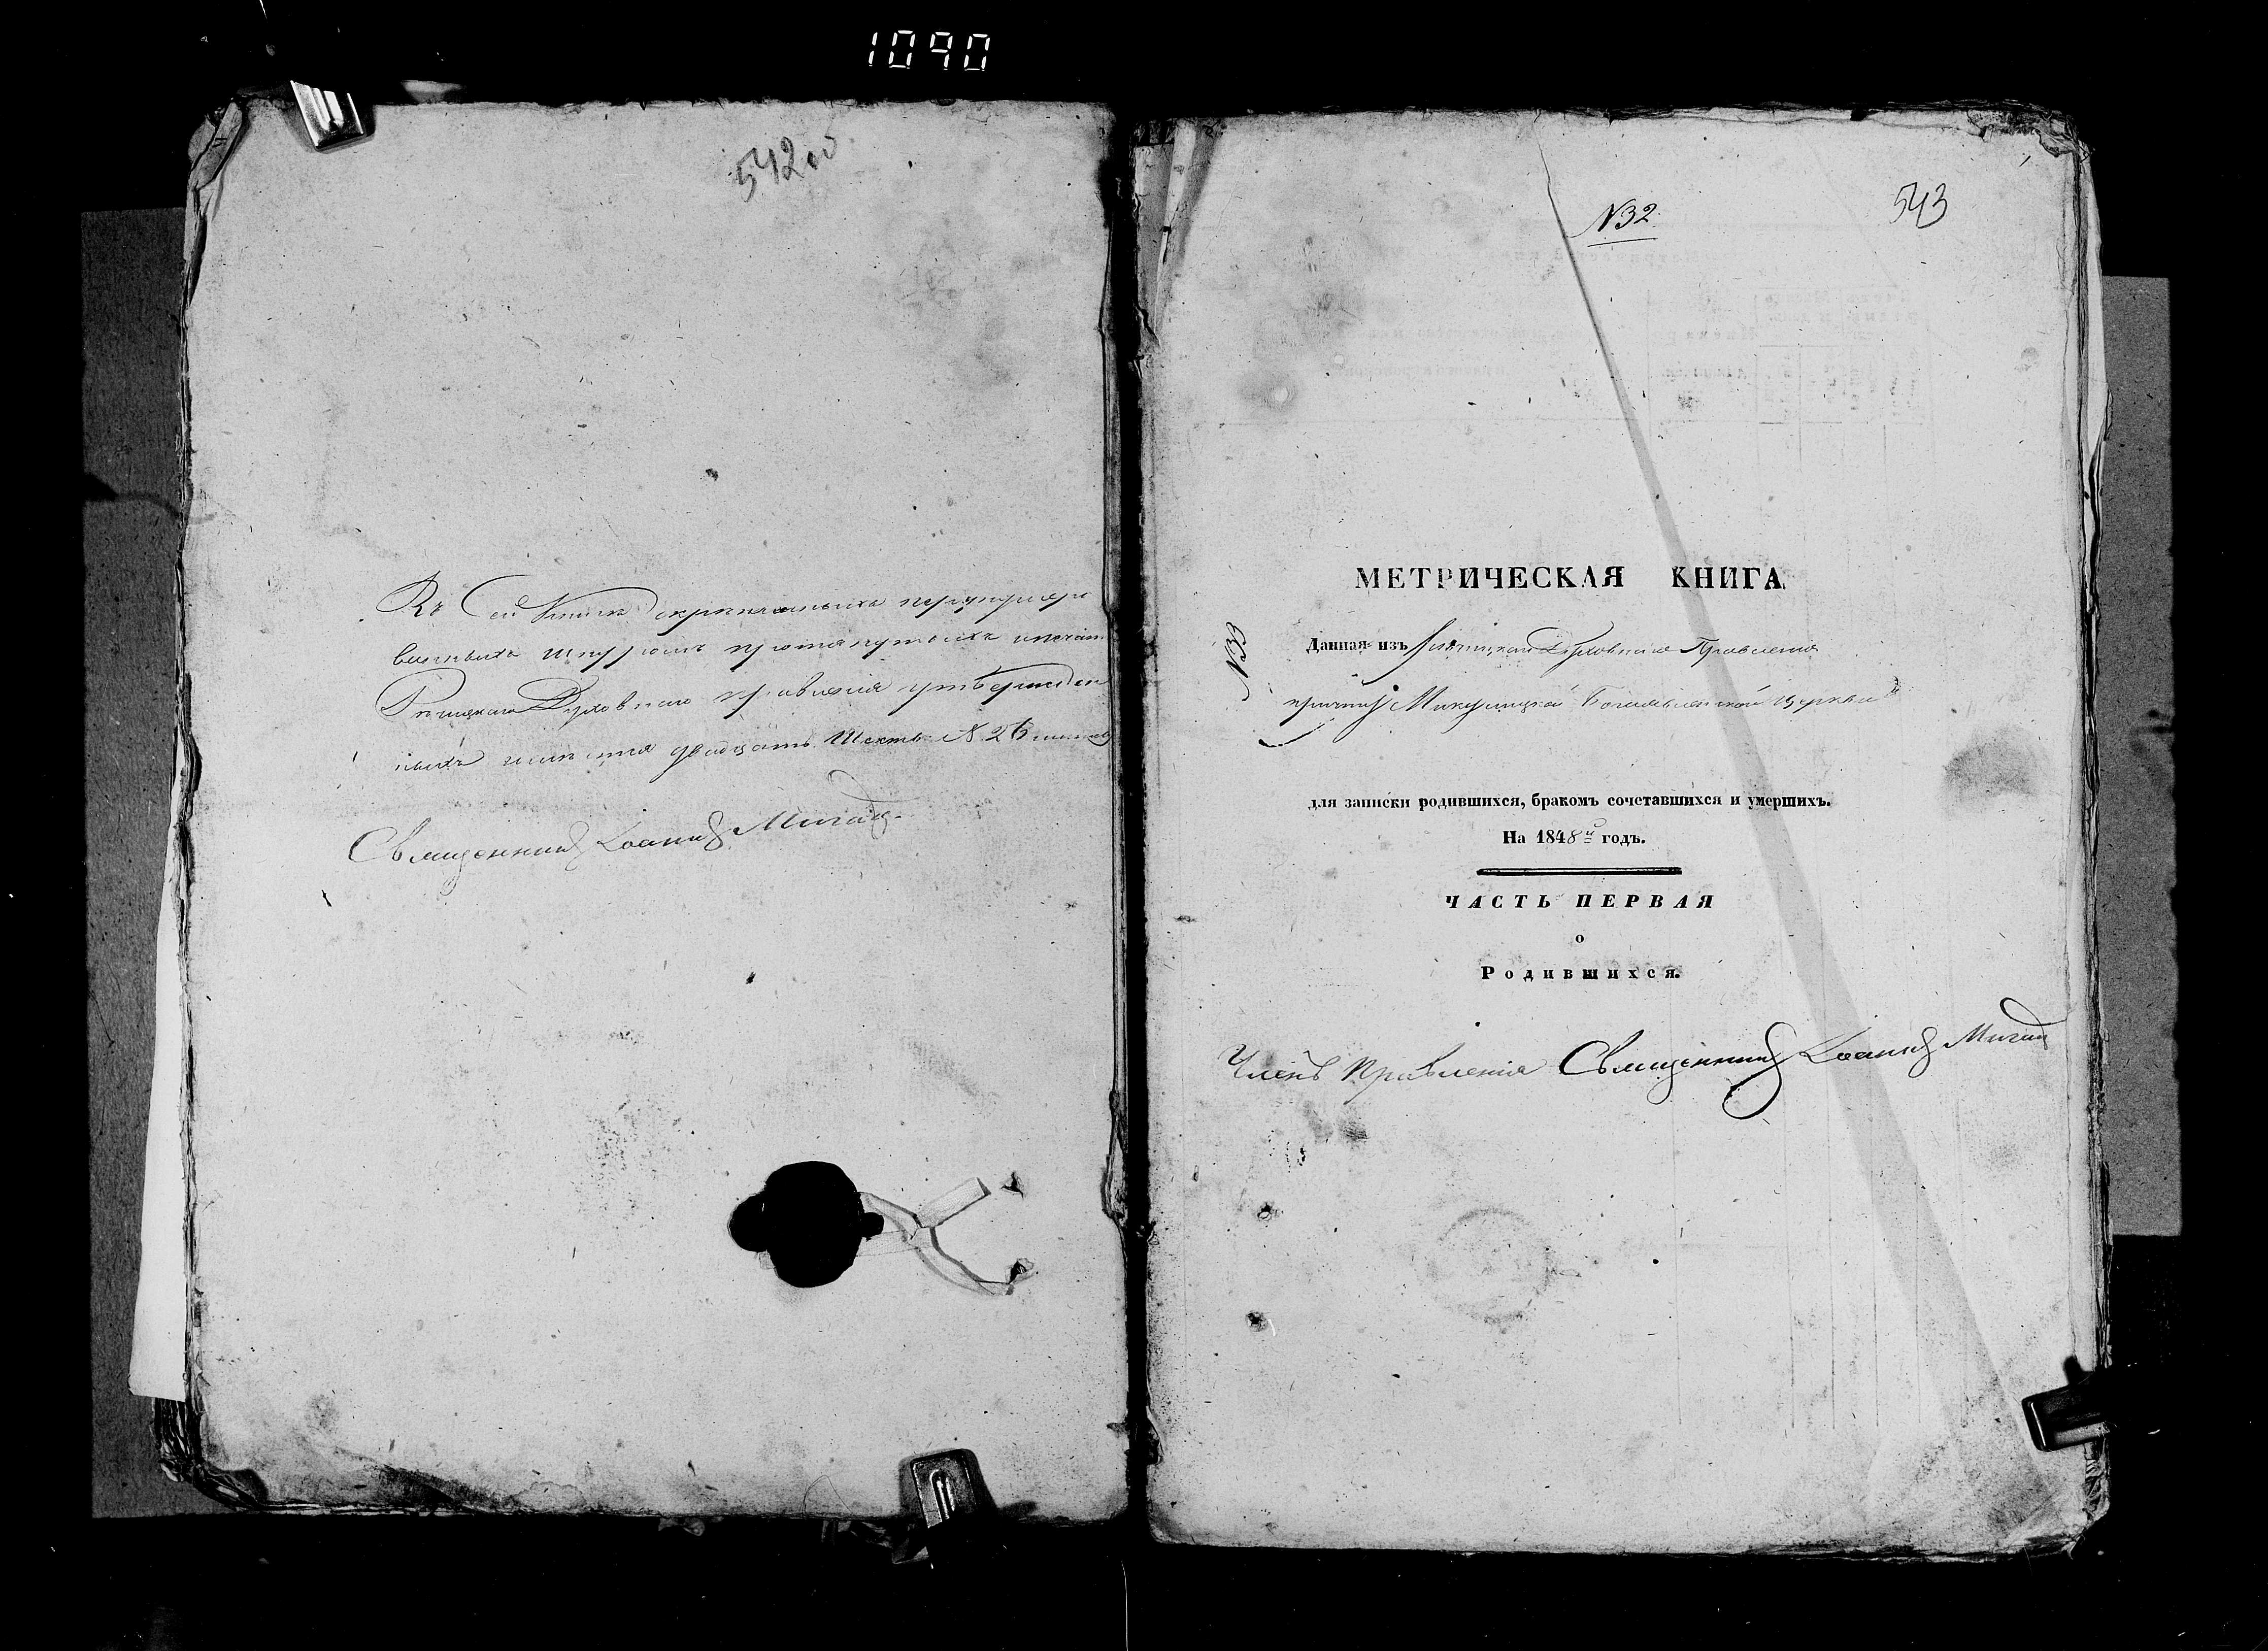 1090
542об
Въ Сей Книге скрепленныхъ перенумеро
ванныхъ шнуромъ протянутыхъ и печат
Речицкаго Духовнаго правления утвержден
ныхъ листовъ двадцать Шесть N. 26
Священникъ Іоаннъ Мигай
N32
543
МЕТРИЧЕСКАЯ КНИГА
N33
Данная изъ Речицкаго Духовнаго Правления
причту Микулицкой Богоявленской Церкви
для записки родившихся, бракомъ сочетавшихся и умершихъ.
На 1848й годъ.
ЧАСТЬ ПЕРВАЯ
о
Родившихся.
Членъ Правления Священникъ Іоаннъ Мигай